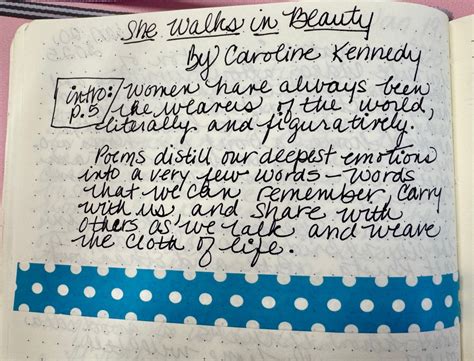 She Walks in Beauty
By Caroline Kennedy
intro: women have always been
p. 5 the weavers of the world,
literally and figuratively.
Poems distill our deepest emotions
into a very few words – words
that we can remember, carry
with us, and share with
others as we talk and weave
the cloth of life.